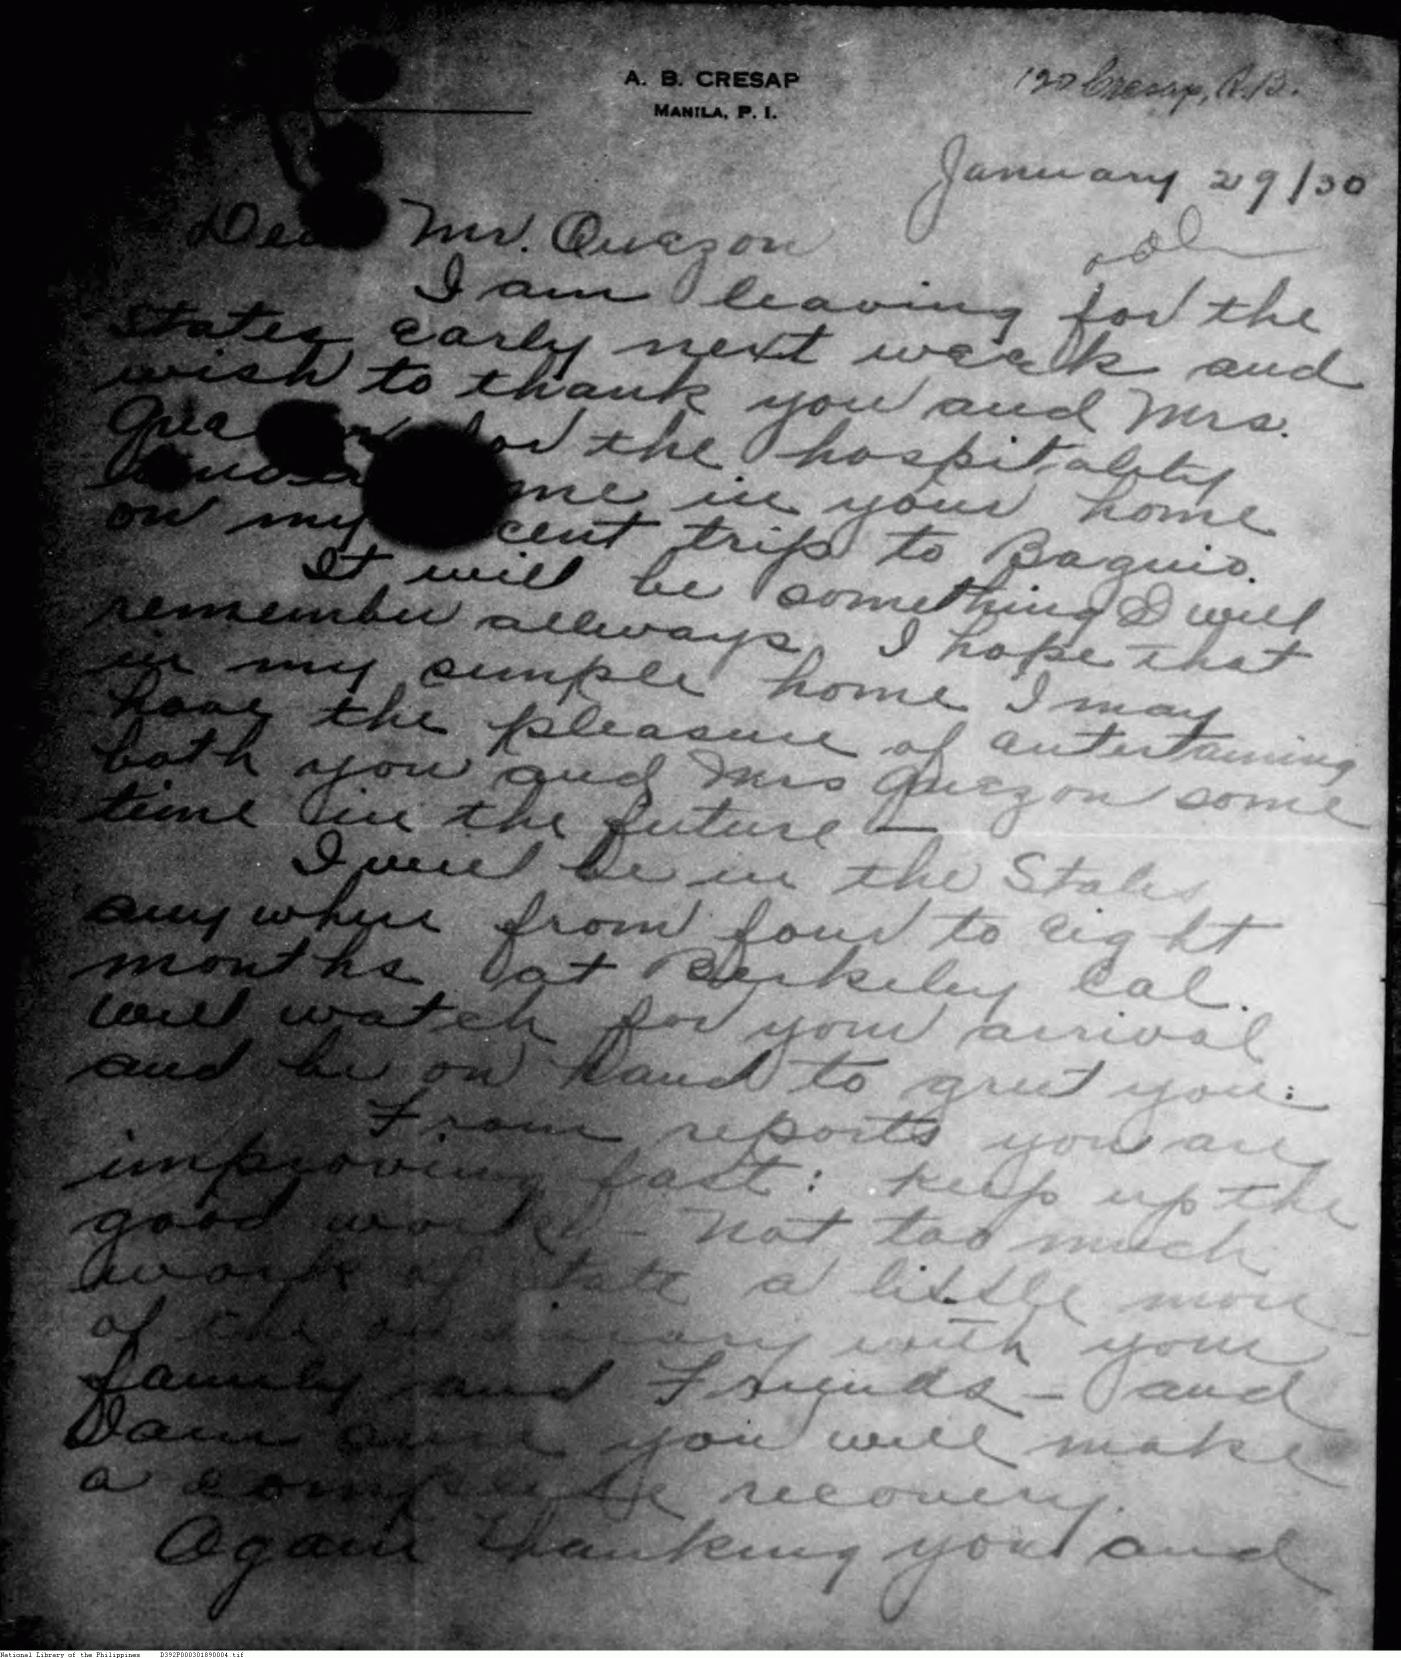 A. B. CRESAP
MANILA, P. I.
120 Cresap, A.B.
January 29/30
Dear Mr. Quezon
I am leaving for the
States early next week and
wish to thank you and Mrs.
for the hospitality
me in your home
on my cent trip to Baguio.
It will be something I will
remember allways. I hope that
in my simple home I may
have the pleasure of entertaining
both you and Mrs Quezon some
time in the future —
I will be in the States
any where from four to eight
months at Berkeley Cal.
will watch for your arrival
and be on hand to greet you:
From reports you are
improving fast: keep up the
good work — not too much
work of state a little more
of the ordinary with your
family and Friends — and
I am sure you will make
a complete recovery.
Again thanking you and
National Library of the Philippines D392P000301890004.tif